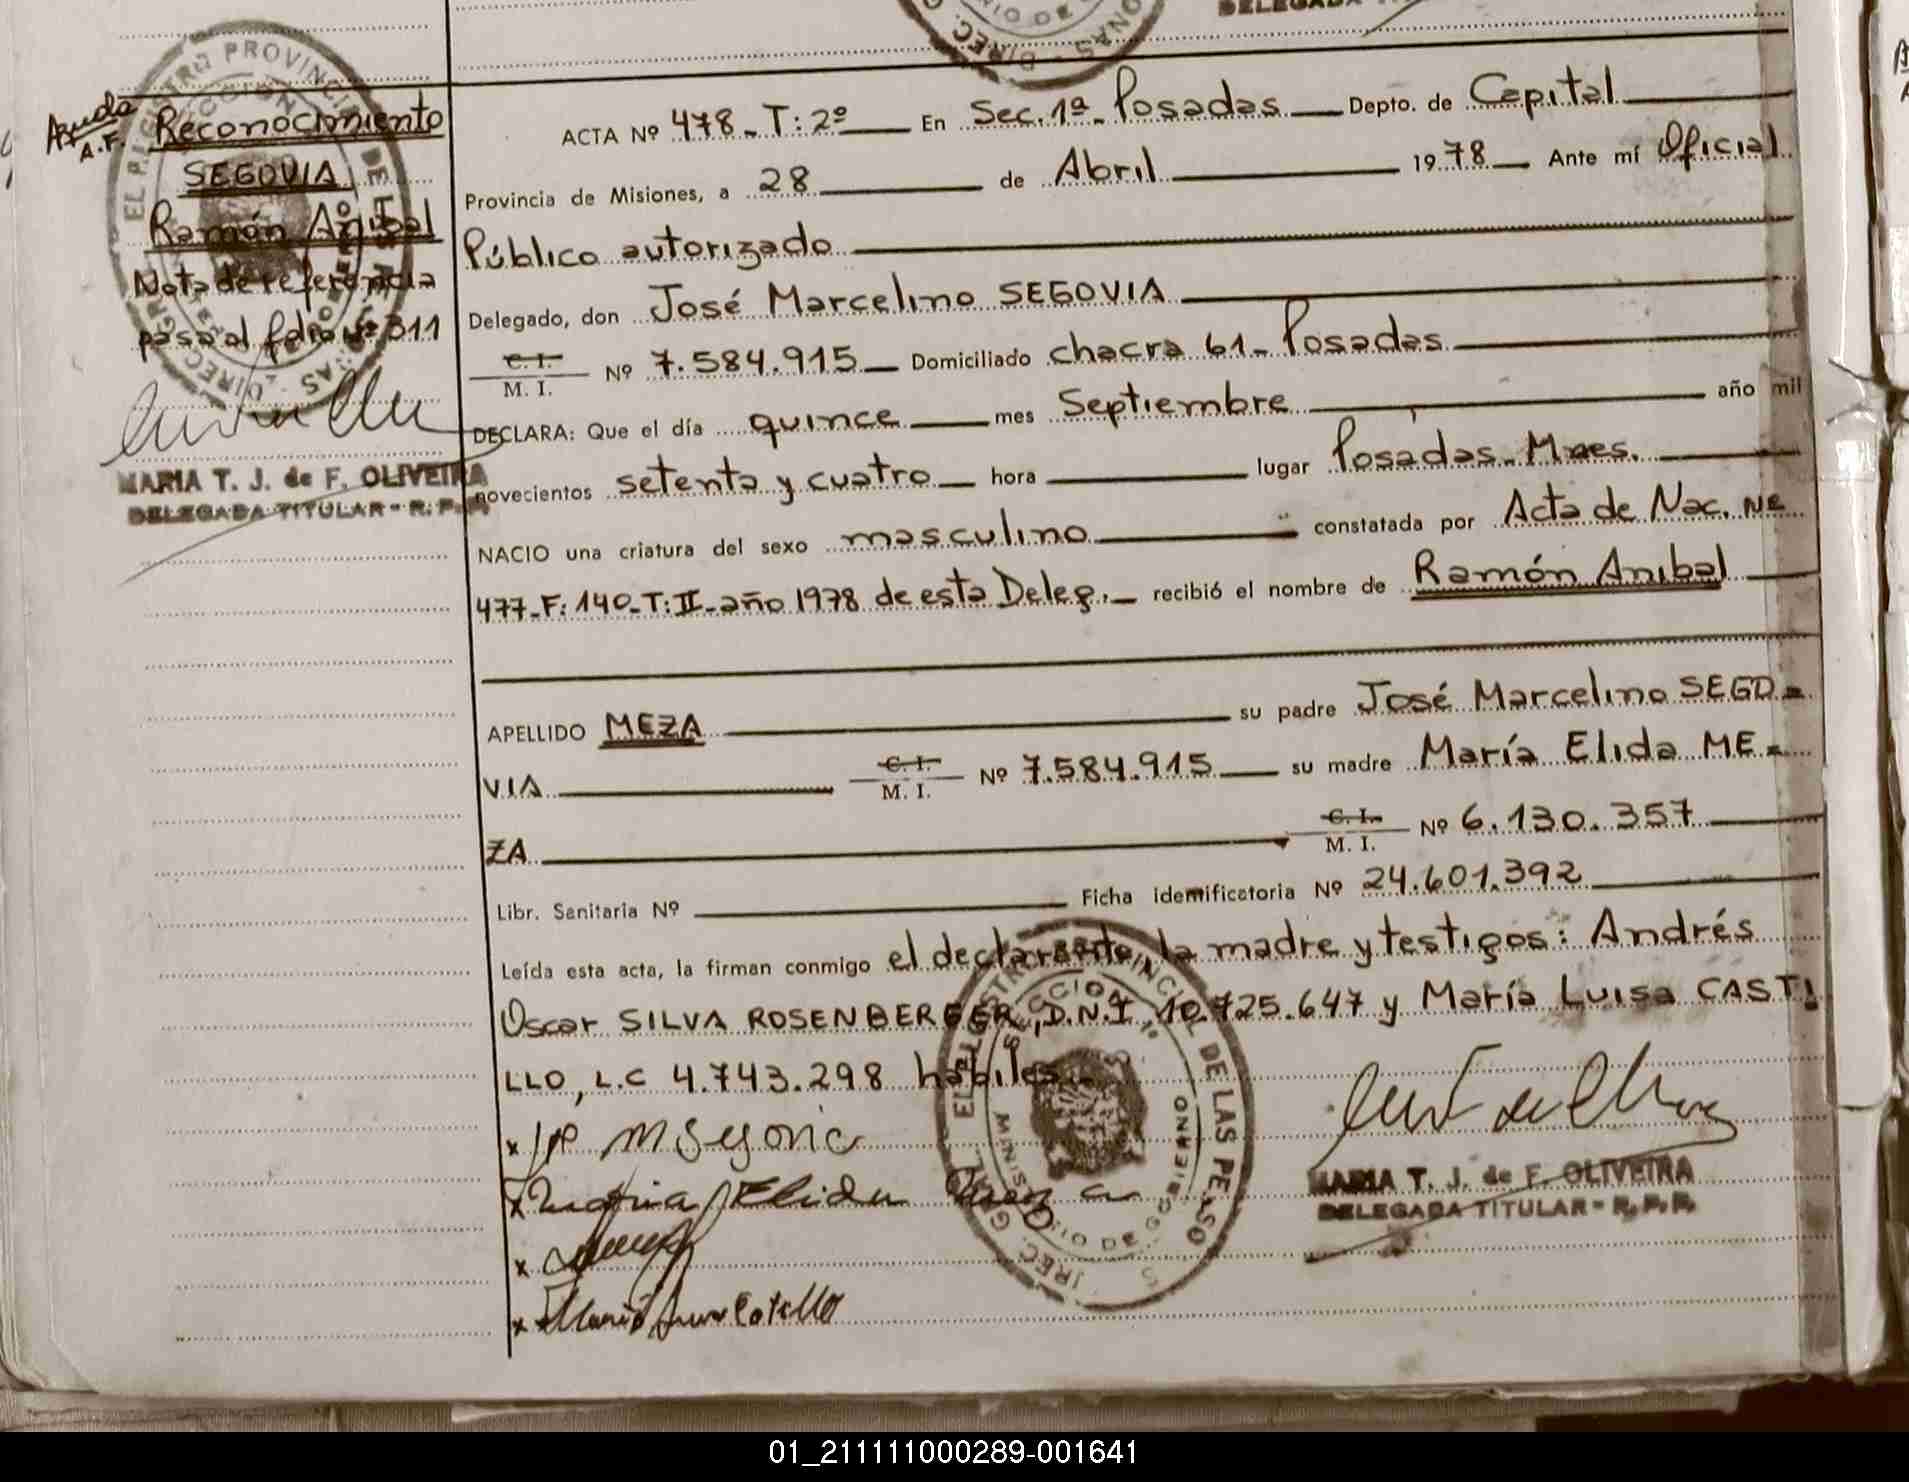 DELEGADA
Ayuda
A.F.
Reconocimiento
SEGOVIA
Ramón Aníbal
Nota de referencia
pasa al folio Nº 311
MARIA T. J. de F. OLIVEIRA
DELEGADA TITULAR - R. P. P.
ACTA Nº 478 - T: 2º En Sec. 1ª - Posadas Depto. de Capital
Provincia de Misiones, a 28 de Abril 1978 Ante mí Oficial
Público autorizado
Delegado, don José Marcelino SEGOVIA
C. I.
M. I. Nº 7.584.915 Domiciliado chacra 61 - Posadas
DECLARA: Que el día quince mes Septiembre año mil
novecientos setenta y cuatro hora lugar Posadas - Mnes.
NACIO una criatura del sexo masculino constatada por Acta de Nac. Nº
477 - F: 140 - T: II - año 1978 de esta Deleg. - recibió el nombre de Ramón Anibal
APELLIDO MEZA su padre José Marcelino SEGO=
VIA C. I.
M. I. Nº 7.584.915 su madre María Elida ME=
ZA C. I.
M. I. Nº 6.130.357
Libr. Sanitaria Nº Ficha identificatoria Nº 24.601.392
Leída esta acta, la firman conmigo el declarante, la madre y testigos: Andrés
Oscar SILVA ROSENBERGER, D.N.I 10.725.647 y María Luisa CASTI
LLO, L.C 4.743.298 hábiles.
x M Segovia
x Maria Elida Meza
x
x Maria Luisa Castillo
EL REGISTRO PROVINCIAL DE LAS PERSONAS
DIREC. GRAL.
SECCION 1ª
MINISTERIO DE GOBIERNO
MARIA T. J. de F. OLIVEIRA
DELEGADA TITULAR - R. P. P.
01_211111000289-001641